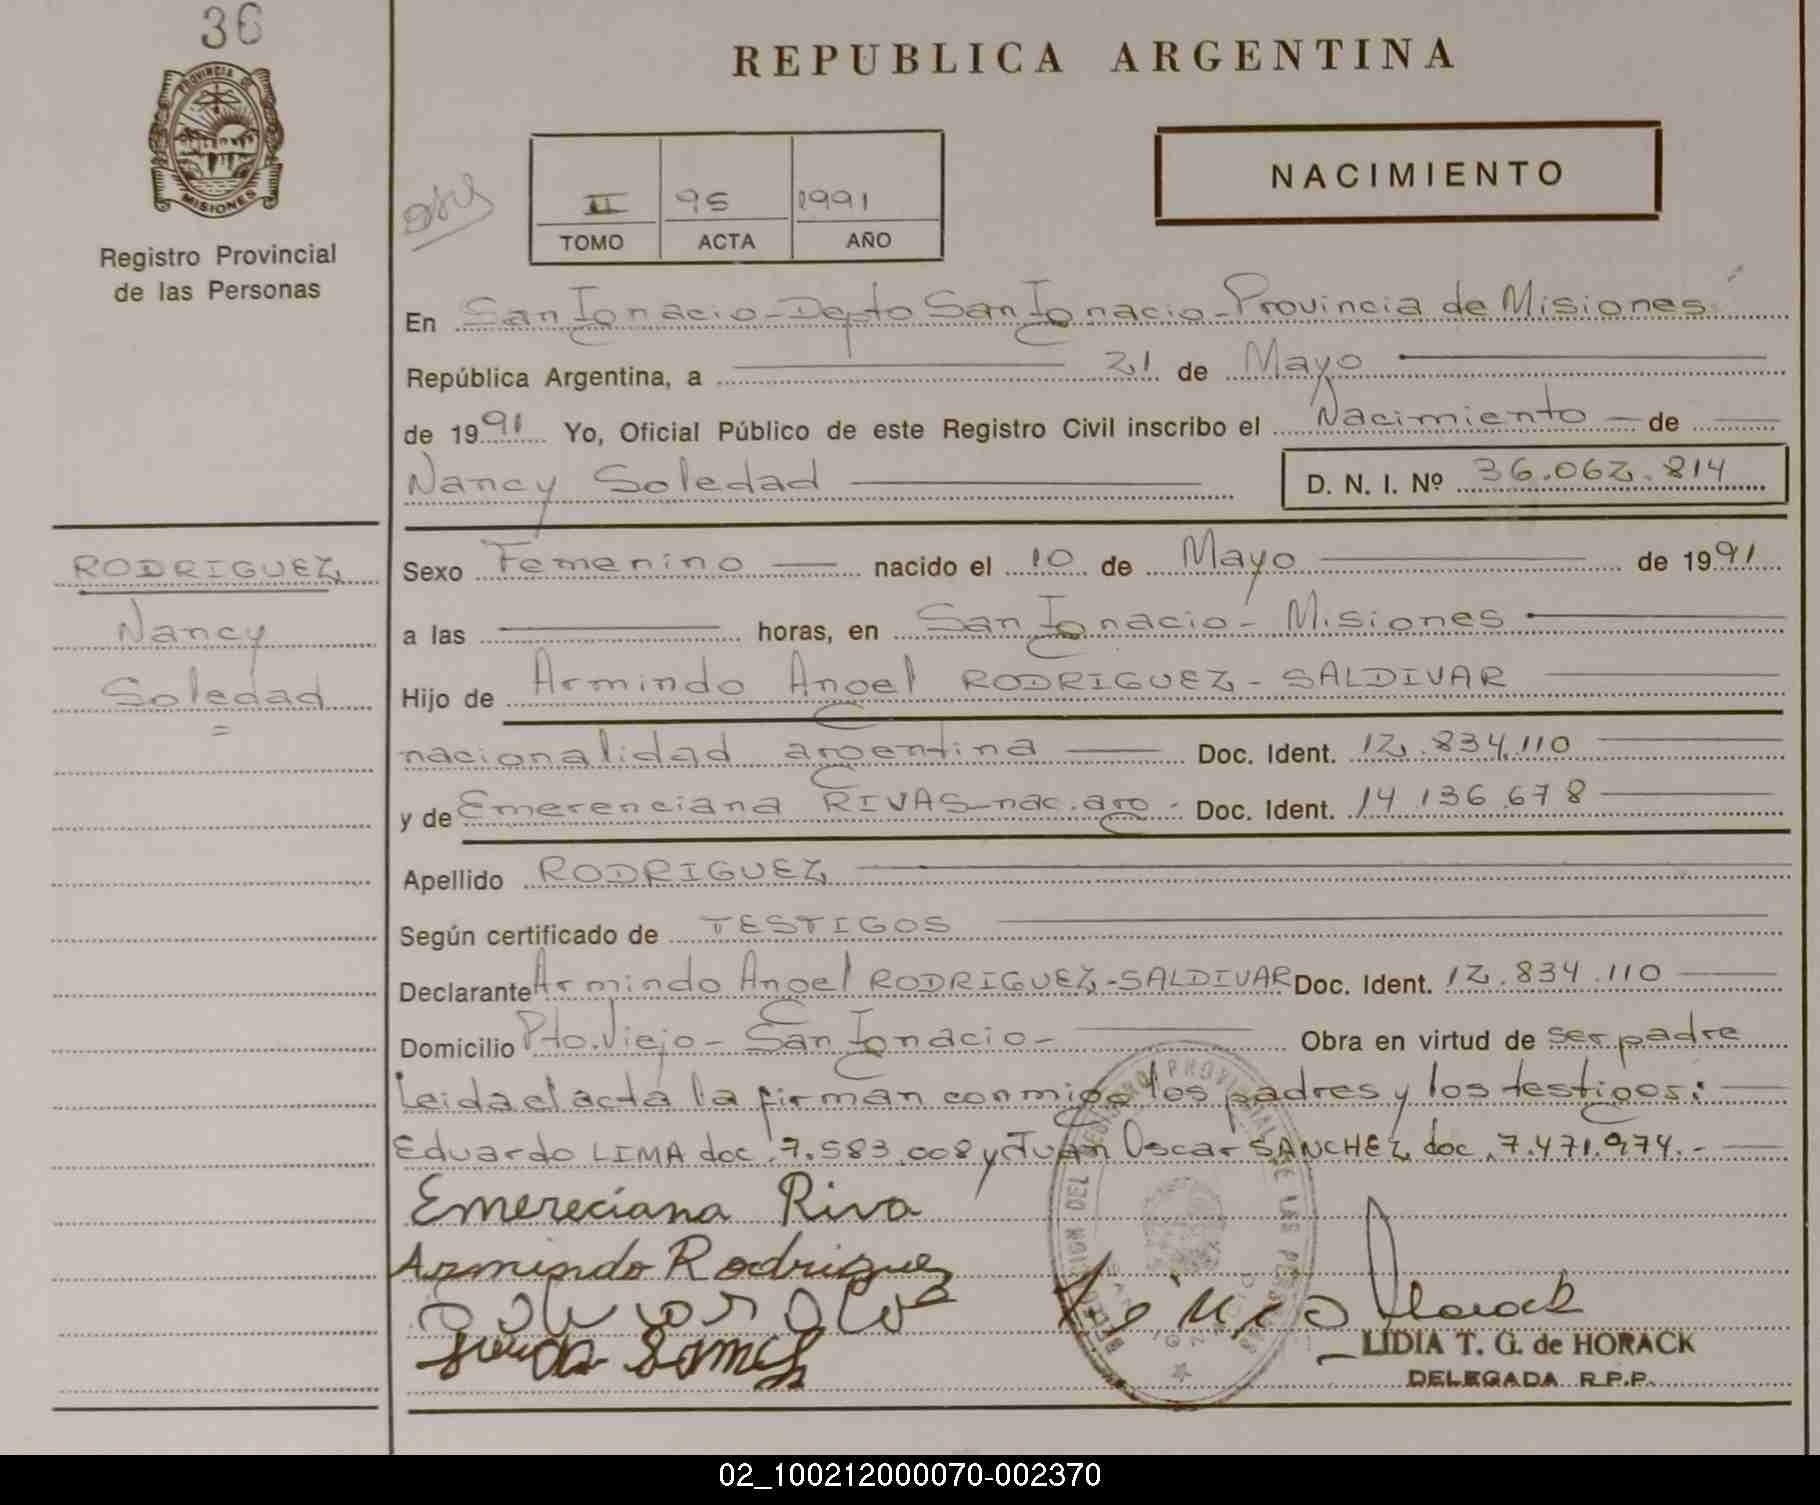 36
PROVINCIA DE
MISIONES
Registro Provincial
de las Personas
REPUBLICA ARGENTINA
NACIMIENTO
II 95 1991
TOMO ACTA AÑO
En San Ignacio-Depto San Ignacio-Provincia de Misiones
República Argentina, a 21 de Mayo
de 1991 Yo, Oficial Público de este Registro Civil inscribo el Nacimiento de
Nancy Soledad D. N. I. Nº 36.062.814
RODRIGUEZ
Nancy
Soledad
Sexo Femenino nacido el 10 de Mayo de 1991
a las horas, en San Ignacio - Misiones
Hijo de Armindo Angel RODRIGUEZ - SALDIVAR
nacionalidad argentina Doc. Ident. 12.834.110
y de Emerenciana RIVAS-nac.arg- Doc. Ident. 14.136.678
Apellido RODRIGUEZ
Según certificado de TESTIGOS
Declarante Armindo Angel RODRIGUEZ-SALDIVAR Doc. Ident. 12.834.110
Domicilio Pto.Viejo - San Ignacio - Obra en virtud de ser padre
Leida el acta la firman conmigo los padres y los testigos:
Eduardo LIMA doc.7.583.008 y Juan Oscar SANCHEZ doc.7.471.974.-
Emereciana Riva
Armindo Rodriguez
Horack
LIDIA T. G. de HORACK
DELEGADA R.P.P.
02_100212000070-002370